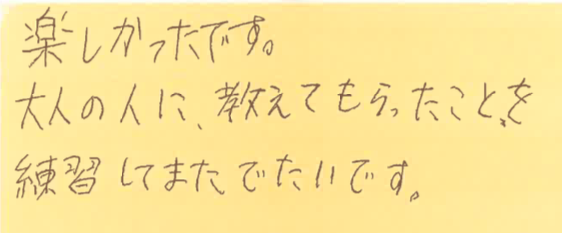 楽しかったです。
大人の人に、教えてもらったことを
練習してまたでたいです。